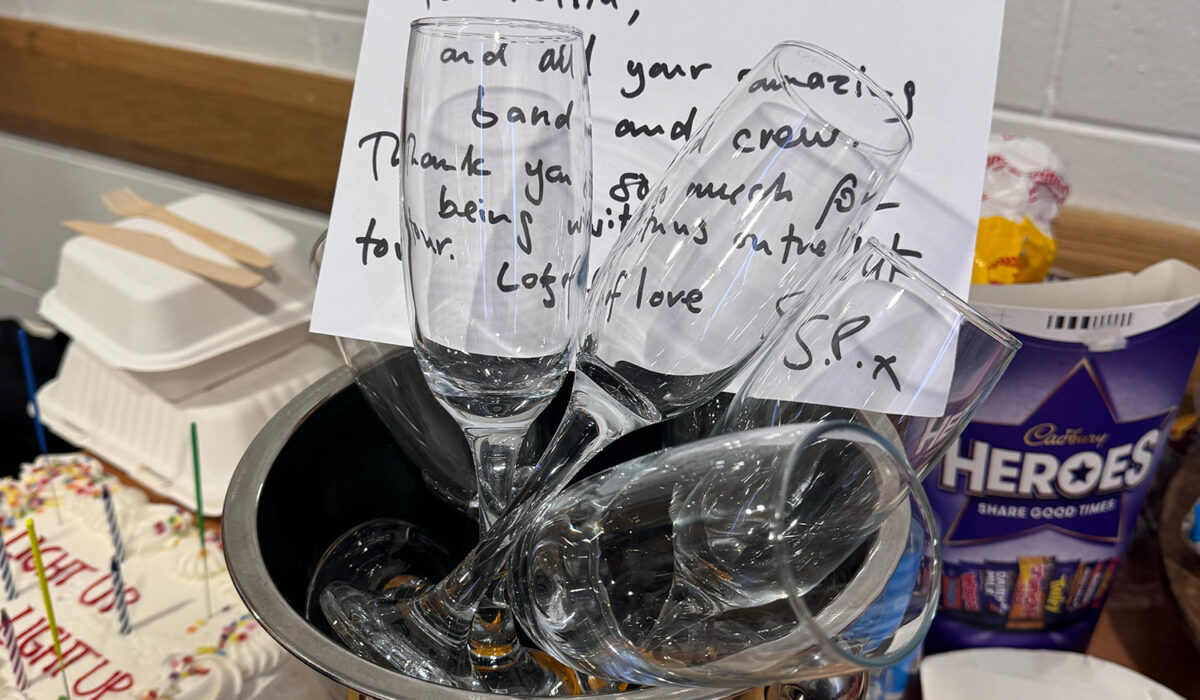 and all your amazing
band and crew.
Thank you so much for
being with us on the
tour.
Lots of love
S.P.x
Cadbury
HEROES
SHARE GOOD TIMES
LIGHT UP
LIGHT UP